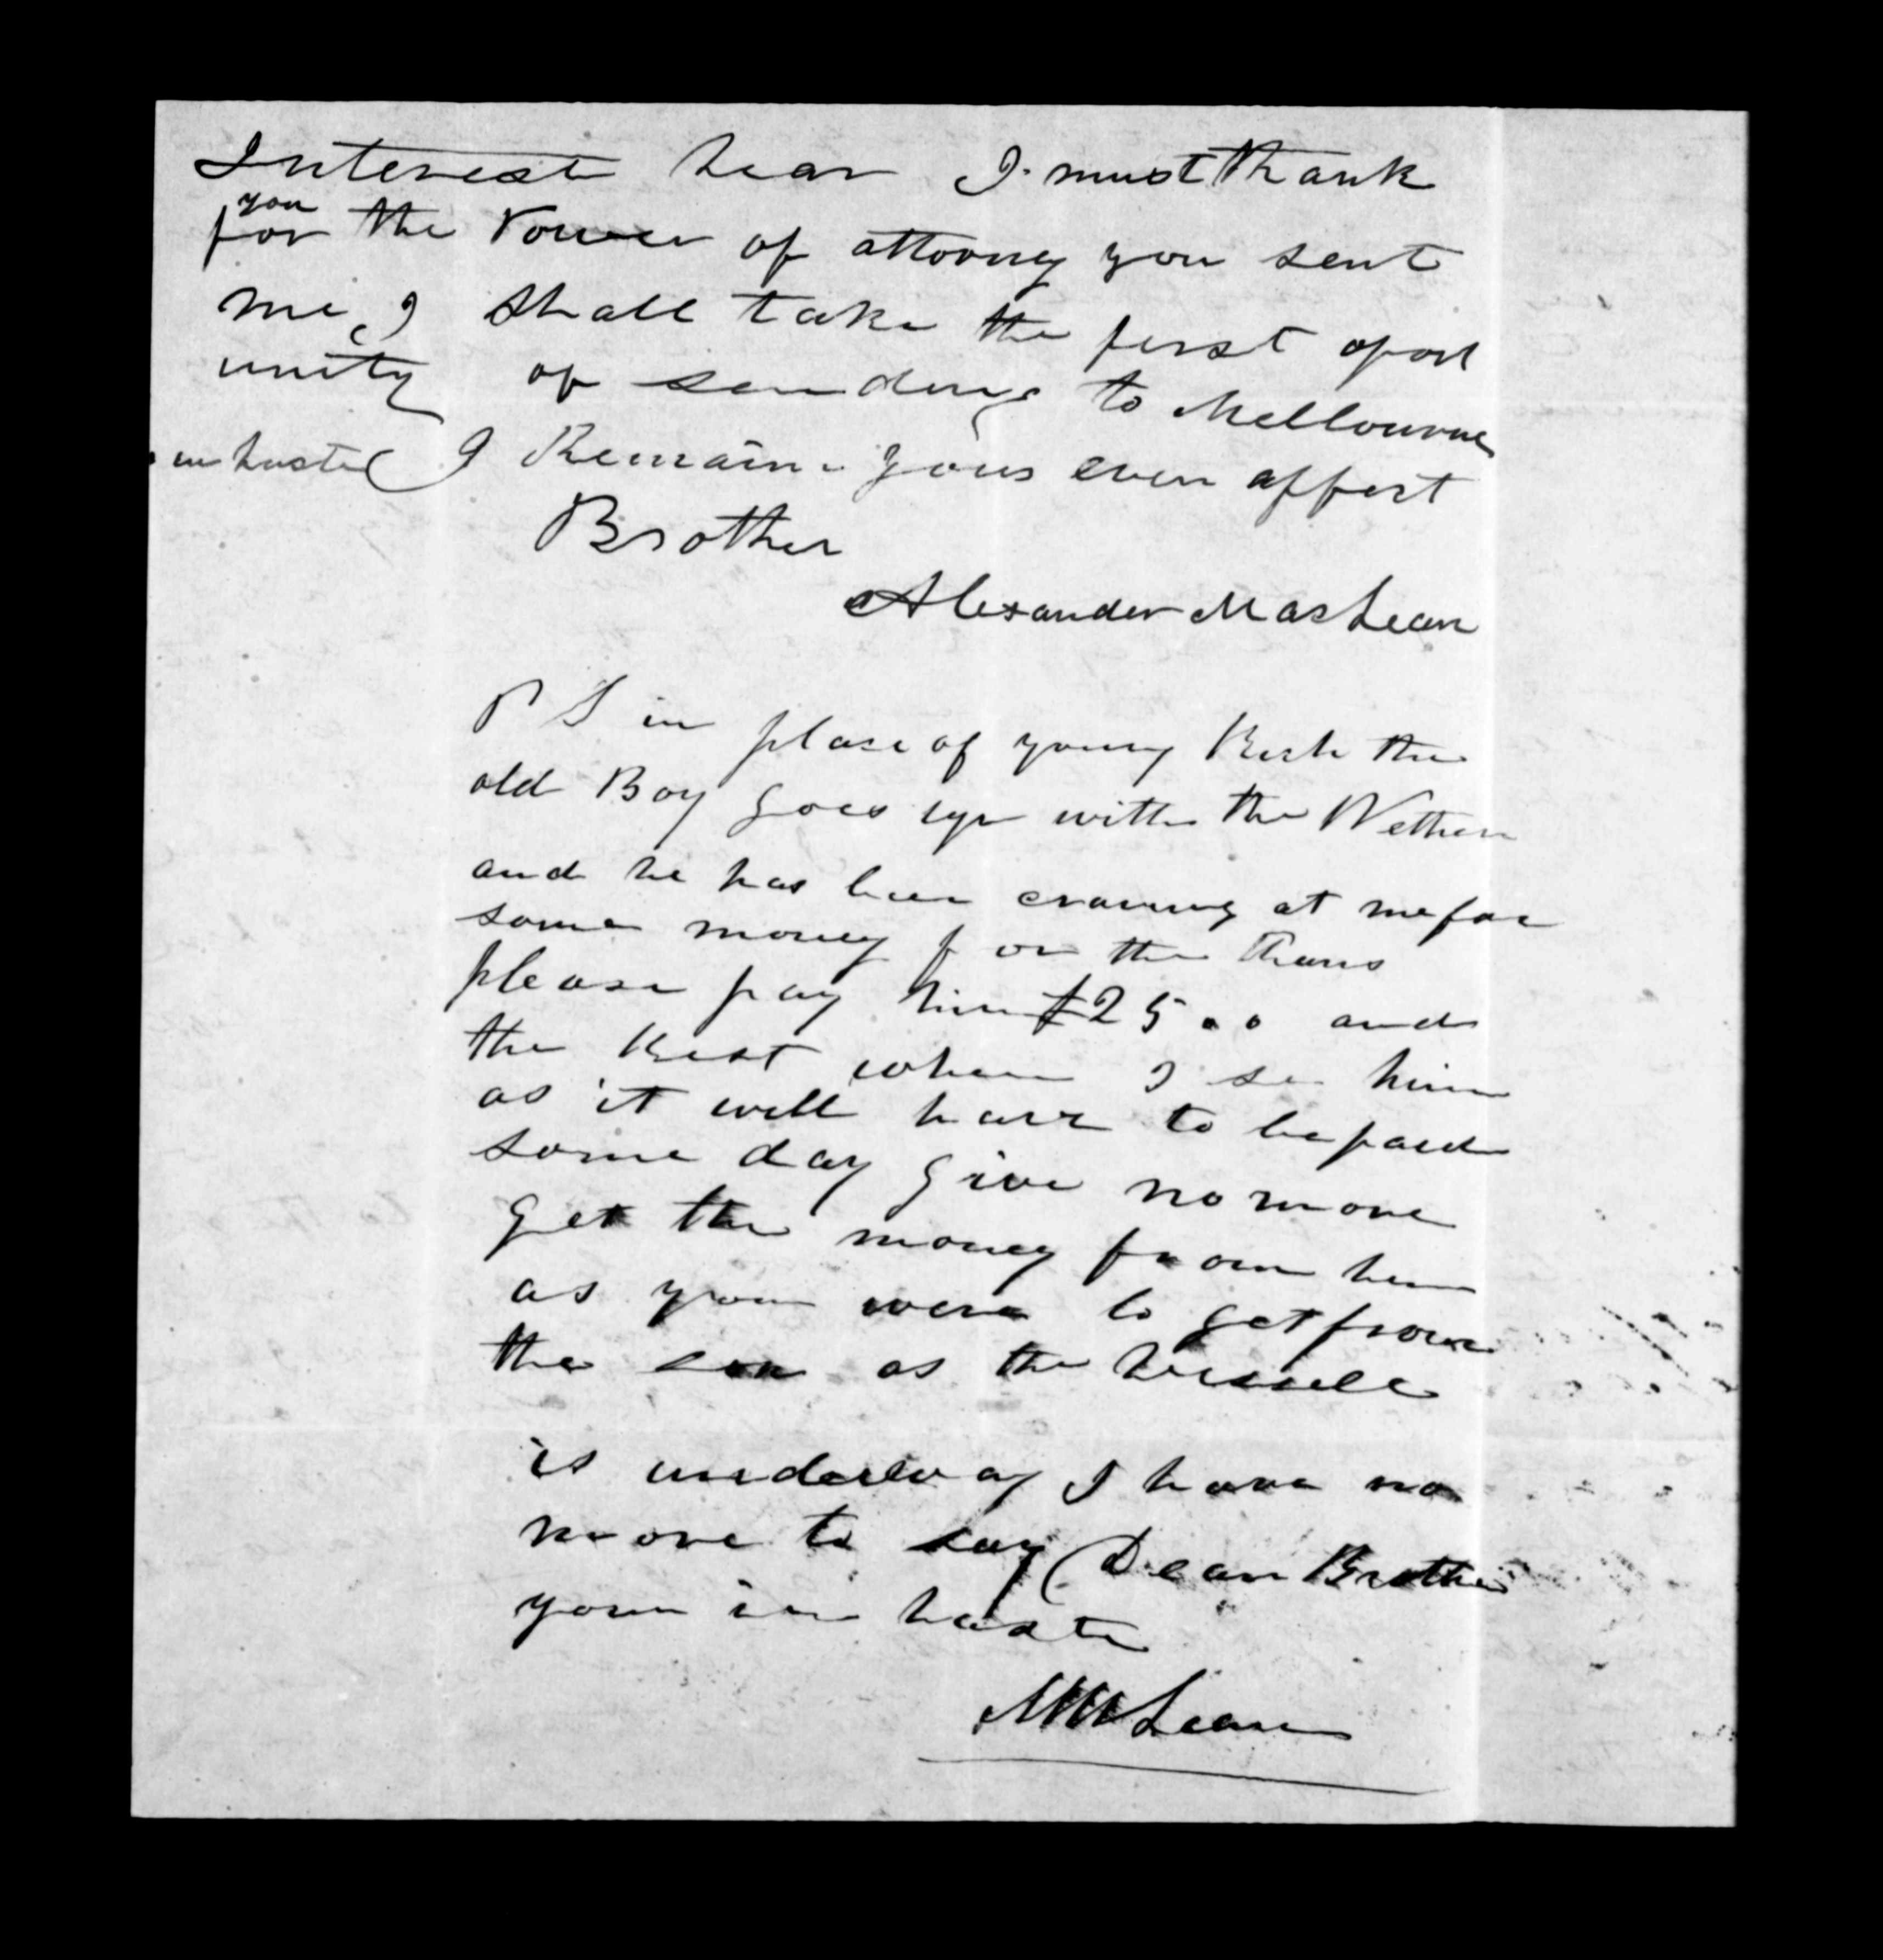 Interest hear I must thank
you
for the Power of attorney you sent
me, I shall take the first oport
unity of sending to Mellourne
in haste I Remain yours ever affect
Brother
Alexander MacLean
P S in place of young Rich the
old Boy goes up with the Wethers
and he has been craving at me for
some money for the Rams
please pay him £25 . . and
the Rest when I see him
as it will have to be paid
some day give no more
get the money from him
as you were to get from
the son as the vessele
is underway I have no
more to say Dear Brother
your in haste
McLean